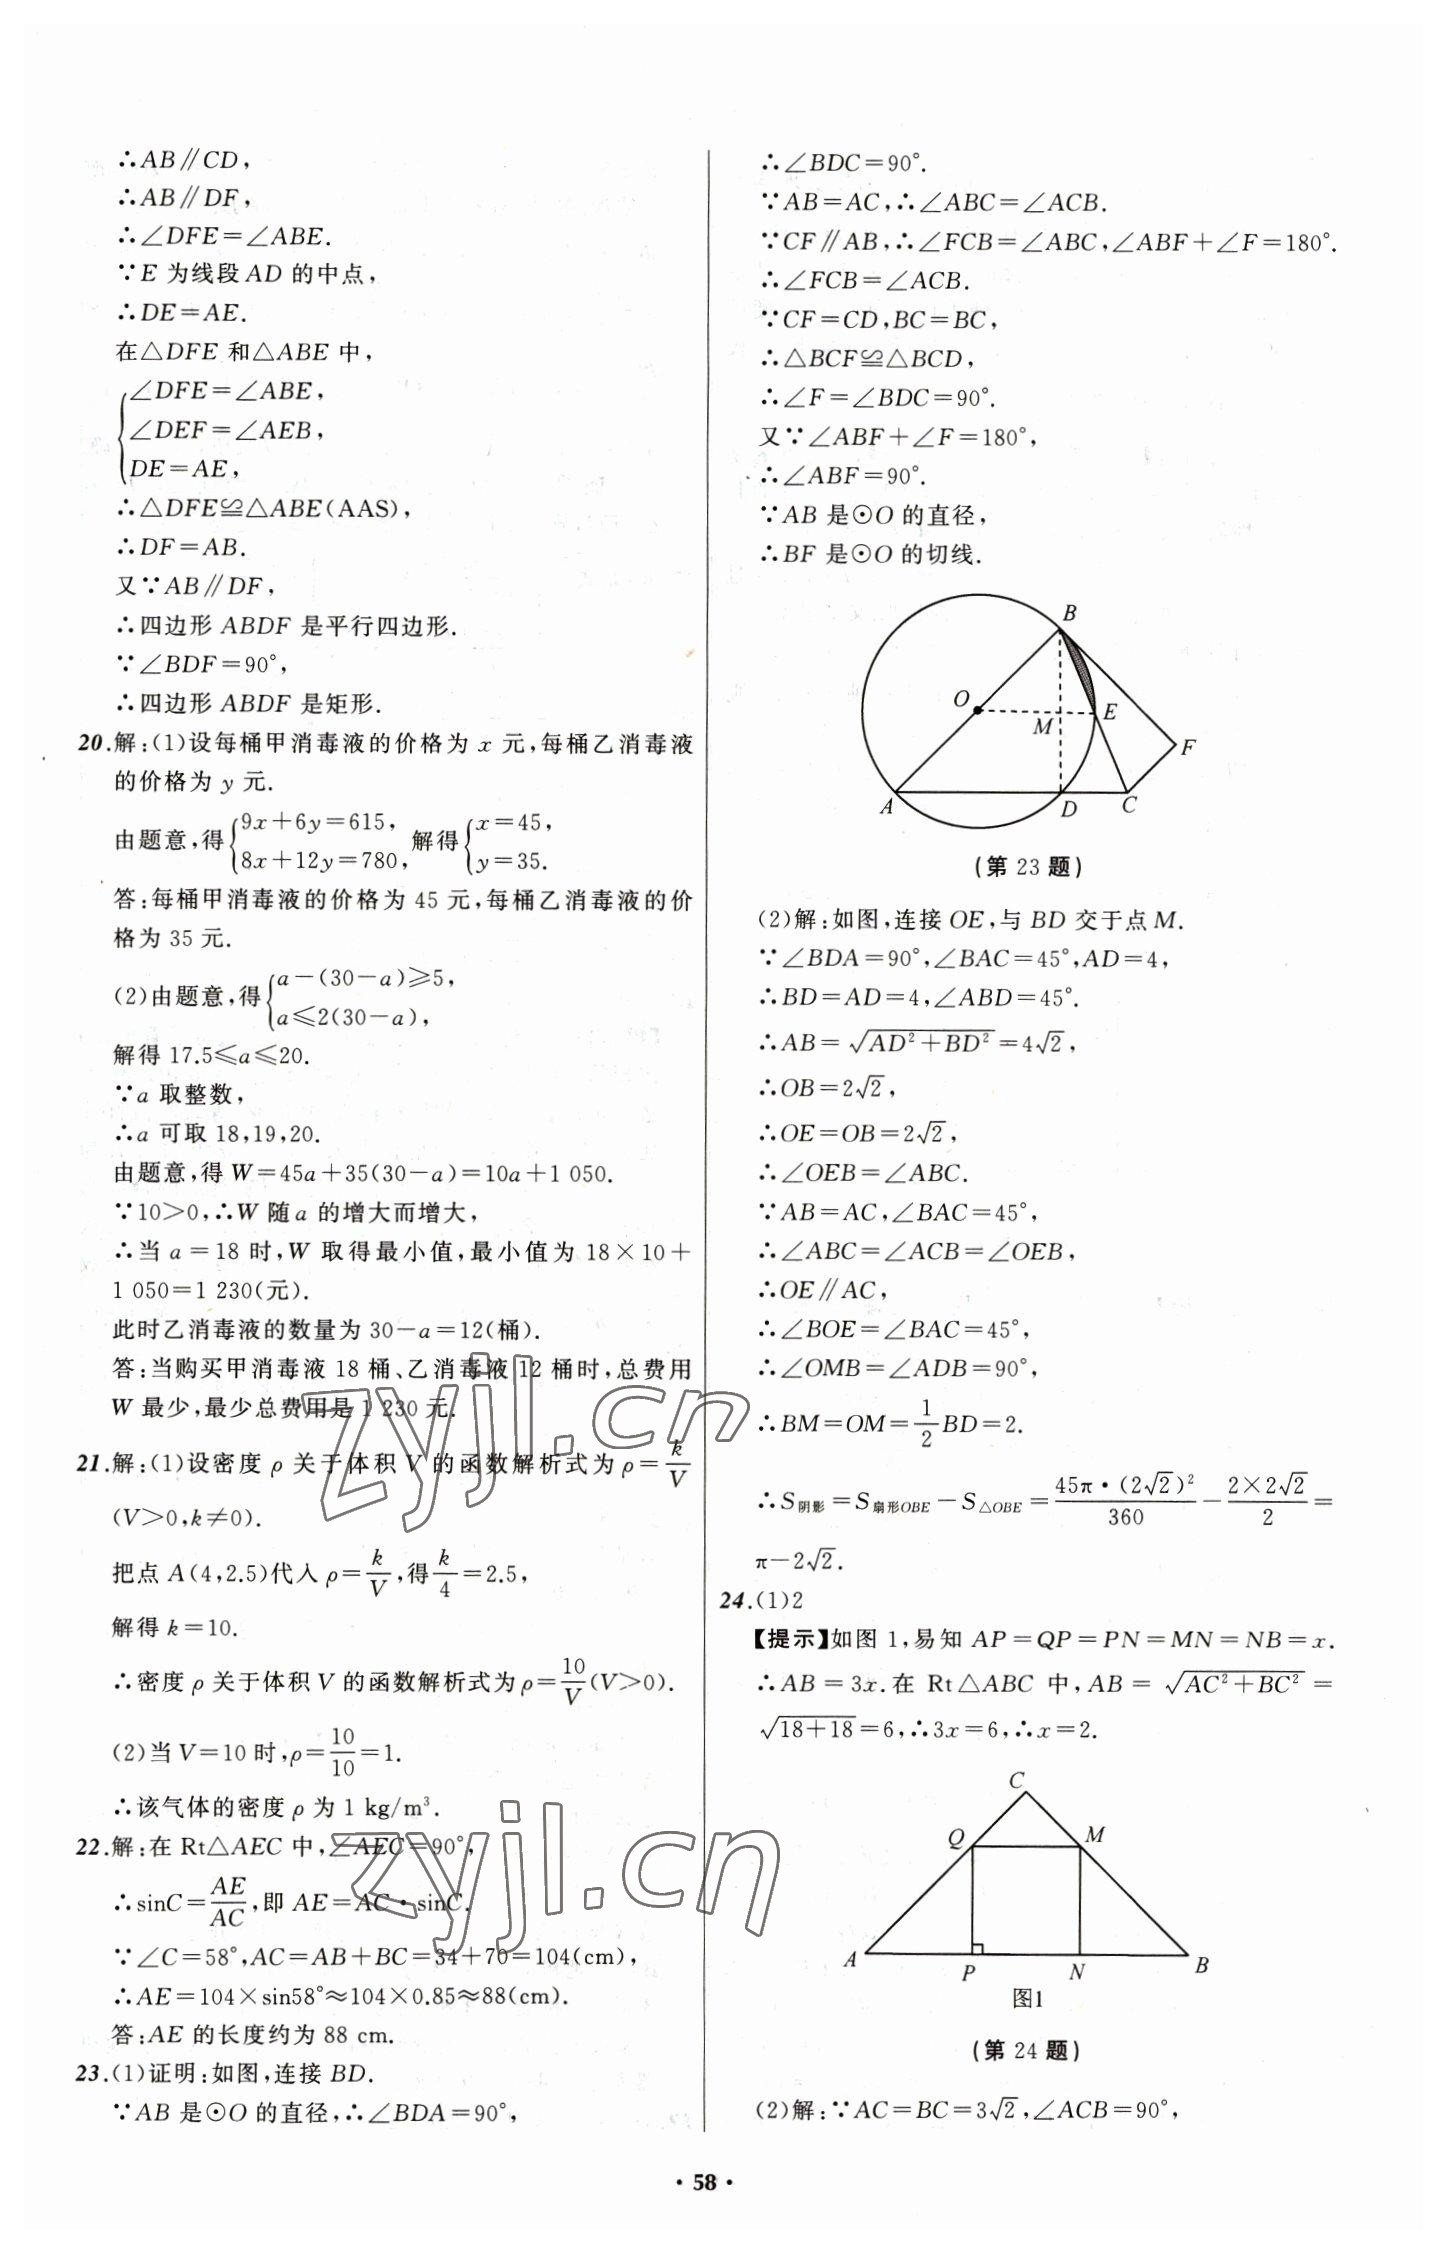 ∴AB∥CD,
∴AB∥DF,
∴∠DFE=∠ABE.
∵E 为线段 AD 的中点,
∴DE=AE.
在△DFE 和△ABE 中,
{∠DFE=∠ABE,
∠DEF=∠AEB,
DE=AE,
∴△DFE≌△ABE(AAS),
∴DF=AB.
又∵AB∥DF,
∴四边形 ABDF 是平行四边形.
∵∠BDF=90°,
∴四边形 ABDF 是矩形.
20.解:(1)设每桶甲消毒液的价格为 x 元,每桶乙消毒液
的价格为 y 元.
由题意,得{9x+6y=615, 8x+12y=780, 解得{x=45, y=35.
答:每桶甲消毒液的价格为 45 元,每桶乙消毒液的价
格为 35 元.
(2)由题意,得{a-(30-a)≥5, a≤2(30-a),
解得 17.5≤a≤20.
∵a 取整数,
∴a 可取 18,19,20.
由题意,得 W=45a+35(30-a)=10a+1 050.
∵10>0,∴W 随 a 的增大而增大,
∴当 a=18 时,W 取得最小值,最小值为 18×10+
1 050=1 230(元).
此时乙消毒液的数量为 30-a=12(桶).
答:当购买甲消毒液 18 桶、乙消毒液 12 桶时,总费用
W 最少,最少总费用是 1 230 元.
21.解:(1)设密度 ρ 关于体积 V 的函数解析式为 ρ=k/V
(V>0,k≠0).
把点 A(4,2.5)代入 ρ=k/V,得k/4=2.5,
解得 k=10.
∴密度 ρ 关于体积 V 的函数解析式为 ρ=10/V(V>0).
(2)当 V=10 时,ρ=10/10=1.
∴该气体的密度 ρ 为 1 kg/m³.
22.解:在 Rt△AEC 中,∠AEC=90°,
∴sinC=AE/AC,即 AE=AC·sinC.
∵∠C=58°,AC=AB+BC=34+70=104(cm),
∴AE=104×sin58°≈104×0.85≈88(cm).
答:AE 的长度约为 88 cm.
23.(1)证明:如图,连接 BD.
∵AB 是⊙O 的直径,∴∠BDA=90°,
∴∠BDC=90°.
∵AB=AC,∴∠ABC=∠ACB.
∵CF∥AB,∴∠FCB=∠ABC,∠ABF+∠F=180°.
∴∠FCB=∠ACB.
∵CF=CD,BC=BC,
∴△BCF≌△BCD,
∴∠F=∠BDC=90°.
又∵∠ABF+∠F=180°,
∴∠ABF=90°.
∵AB 是⊙O 的直径,
∴BF 是⊙O 的切线.
B
O
M
E
F
A
D
C
(第 23 题)
(2)解:如图,连接 OE,与 BD 交于点 M.
∵∠BDA=90°,∠BAC=45°,AD=4,
∴BD=AD=4,∠ABD=45°.
∴AB=√(AD²+BD²)=4√2,
∴OB=2√2,
∴OE=OB=2√2,
∴∠OEB=∠ABC.
∵AB=AC,∠BAC=45°,
∴∠ABC=∠ACB=∠OEB,
∴OE∥AC,
∴∠BOE=∠BAC=45°,
∴∠OMB=∠ADB=90°,
∴BM=OM=1/2BD=2.
∴S阴影=S扇形OBE-S△OBE=45π·(2√2)²/360-2×2√2/2=
π-2√2.
24.(1)2
【提示】如图 1,易知 AP=QP=PN=MN=NB=x.
∴AB=3x.在 Rt△ABC 中,AB=√(AC²+BC²)=
√(18+18)=6,∴3x=6,∴x=2.
C
Q
M
A
P
N
B
图1
(第 24 题)
(2)解:∵AC=BC=3√2,∠ACB=90°,
·58·
zyjl.cn
zyjl.cn